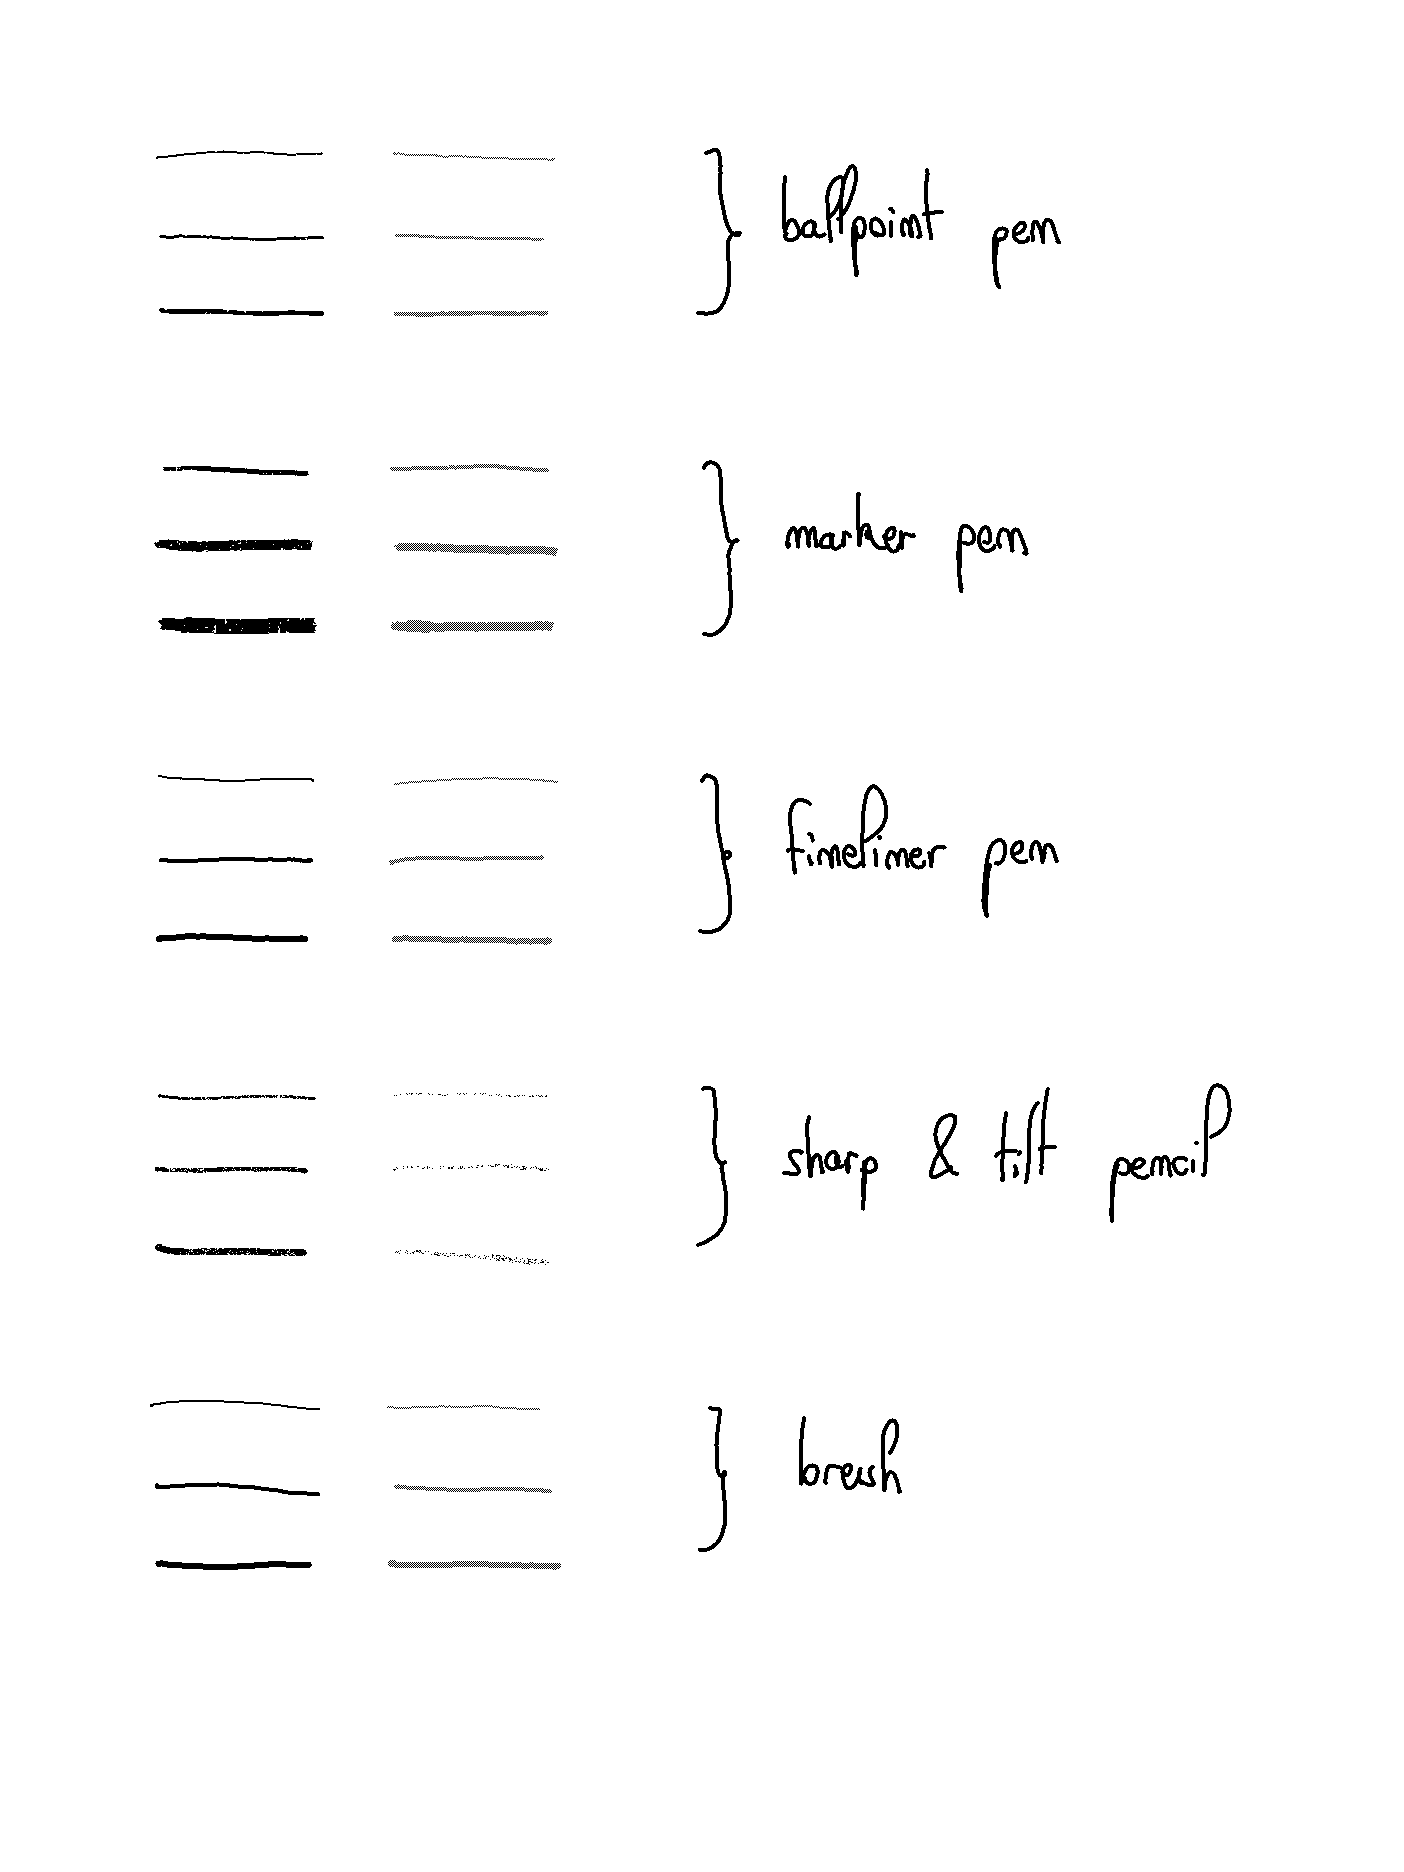 ballpoint pen
marker pen
fineliner pen
sharp & tilt pencil
brush